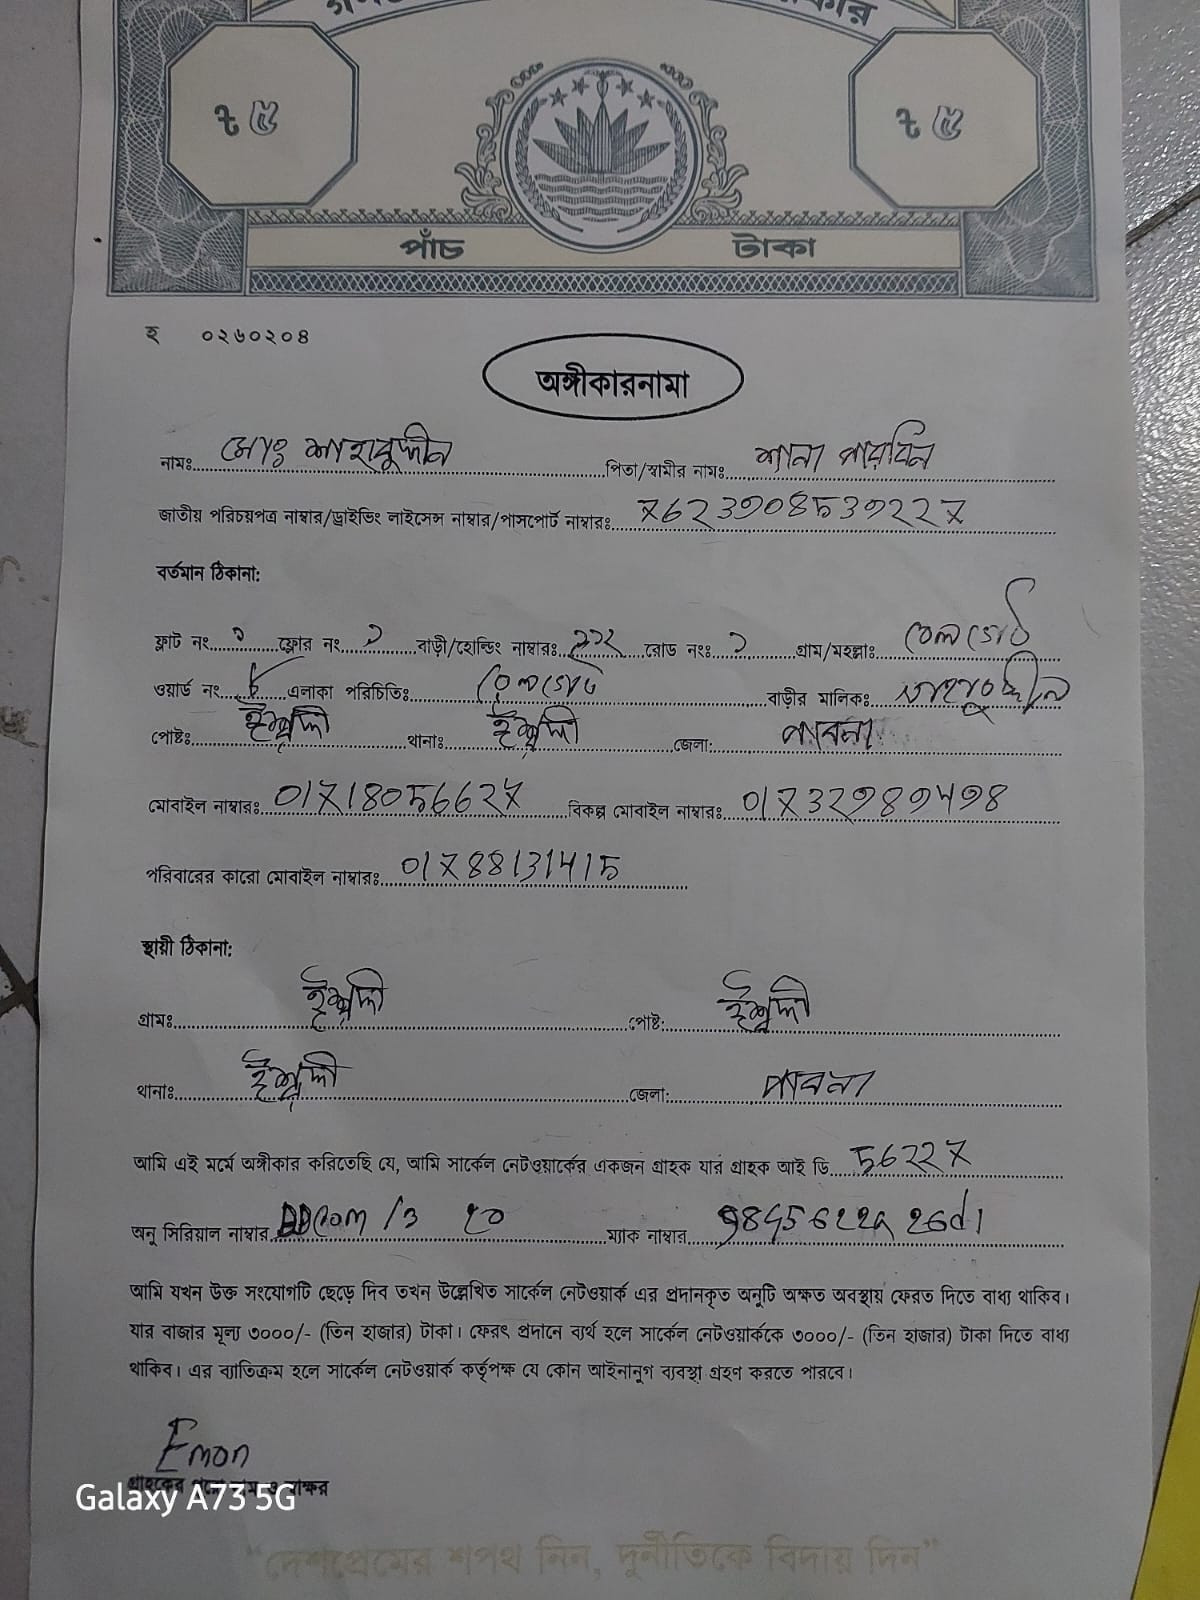 ৳ ৫ ৳ ৫
পাঁচ টাকা
হ ০২৬০২০৪
অঙ্গীকারনামা
নামঃ মোঃ শাহাবুদ্দীন পিতা/স্বামীর নামঃ শানা পারবিন
জাতীয় পরিচয়পত্র নাম্বার/ড্রাইভিং লাইসেন্স নাম্বার/পাসপোর্ট নাম্বারঃ
বর্তমান ঠিকানা:
ফ্লাট নং ফ্লোর নং বাড়ী/হোল্ডিং নাম্বারঃ রোড নংঃ গ্রাম/মহল্লাঃ বেলগেট
ওয়ার্ড নং এলাকা পরিচিতিঃ বেলগেট বাড়ীর মালিকঃ
পোষ্টঃ ঈশ্বরদী থানাঃ ঈশ্বরদী জেলা: পাবনা
মোবাইল নাম্বারঃ 01718056627 বিকল্প মোবাইল নাম্বারঃ
পরিবারের কারো মোবাইল নাম্বারঃ 01788131415
স্থায়ী ঠিকানা:
গ্রামঃ ঈশ্বরদী পোষ্ট: ঈশ্বরদী
থানাঃ ঈশ্বরদী জেলা: পাবনা
আমি এই মর্মে অঙ্গীকার করিতেছি যে, আমি সার্কেল নেটওয়ার্কের একজন গ্রাহক যার গ্রাহক আই ডি 56227
অনু সিরিয়াল নাম্বার ম্যাক নাম্বার
আমি যখন উক্ত সংযোগটি ছেড়ে দিব তখন উল্লেখিত সার্কেল নেটওয়ার্ক এর প্রদানকৃত অনুটি অক্ষত অবস্থায় ফেরত দিতে বাধ্য থাকিব।
যার বাজার মূল্য ৩০০০/- (তিন হাজার) টাকা। ফেরৎ প্রদানে ব্যর্থ হলে সার্কেল নেটওয়ার্ককে ৩০০০/- (তিন হাজার) টাকা দিতে বাধ্য
থাকিব। এর ব্যাতিক্রম হলে সার্কেল নেটওয়ার্ক কর্তৃপক্ষ যে কোন আইনানুগ ব্যবস্থা গ্রহণ করতে পারবে।
Emon
গ্রাহকের স্বাক্ষর
Galaxy A73 5G
“দেশপ্রেমের শপথ নিন, দুর্নীতিকে বিদায় দিন”